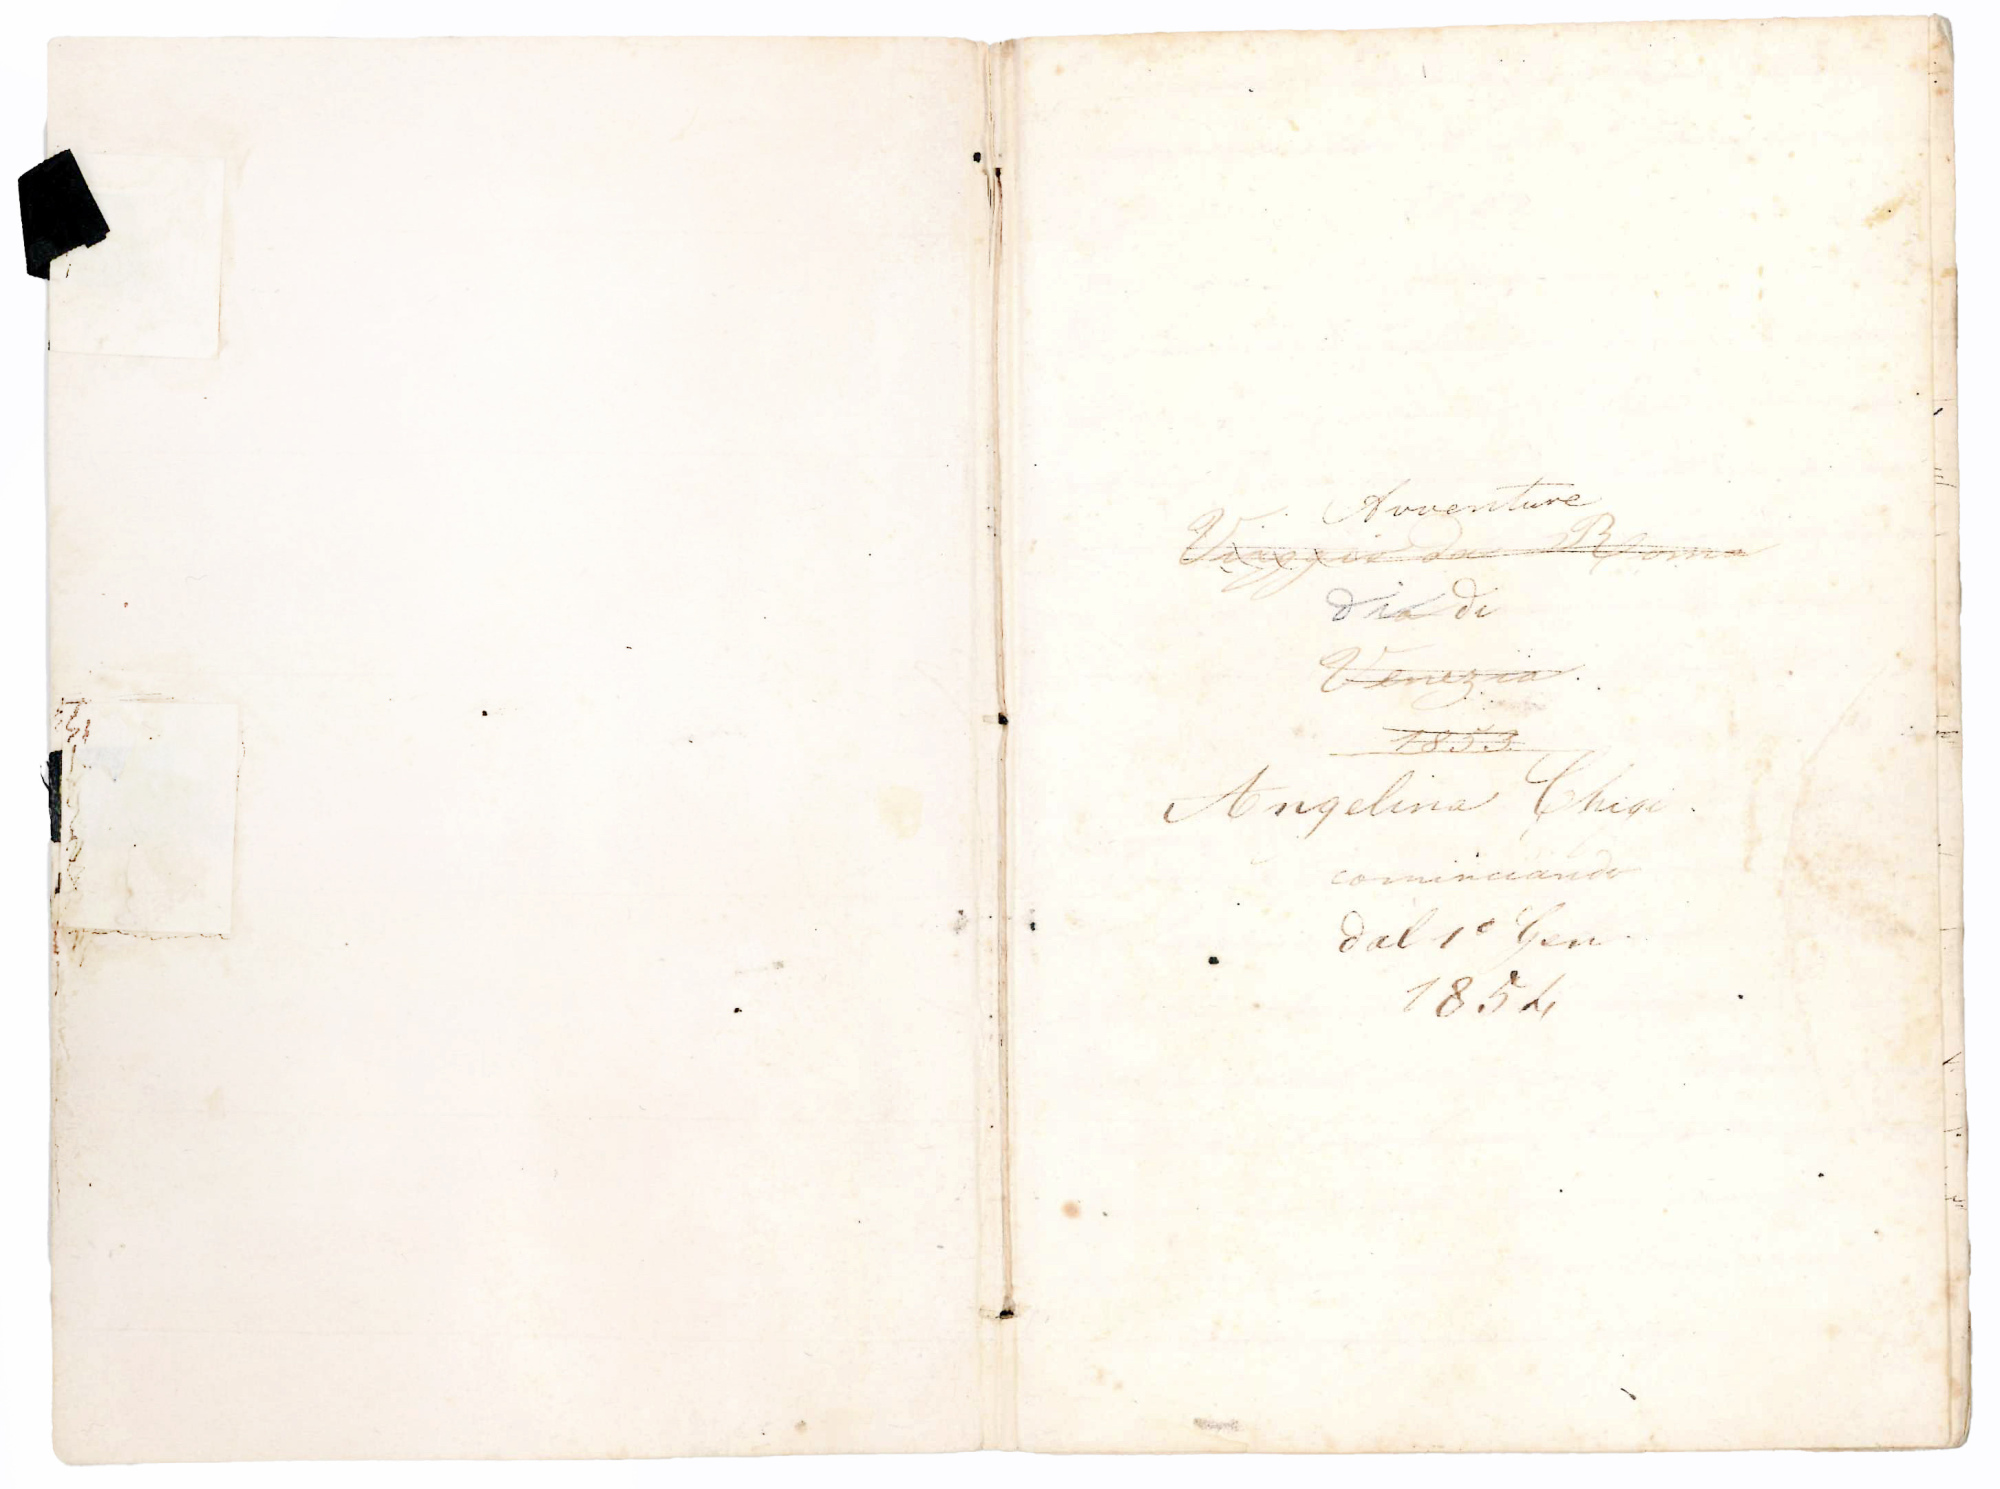 Avventure
Viaggio da Roma
di
Venezia
1853
Angelina Chigi
cominciando
dal 1º Gen
1854